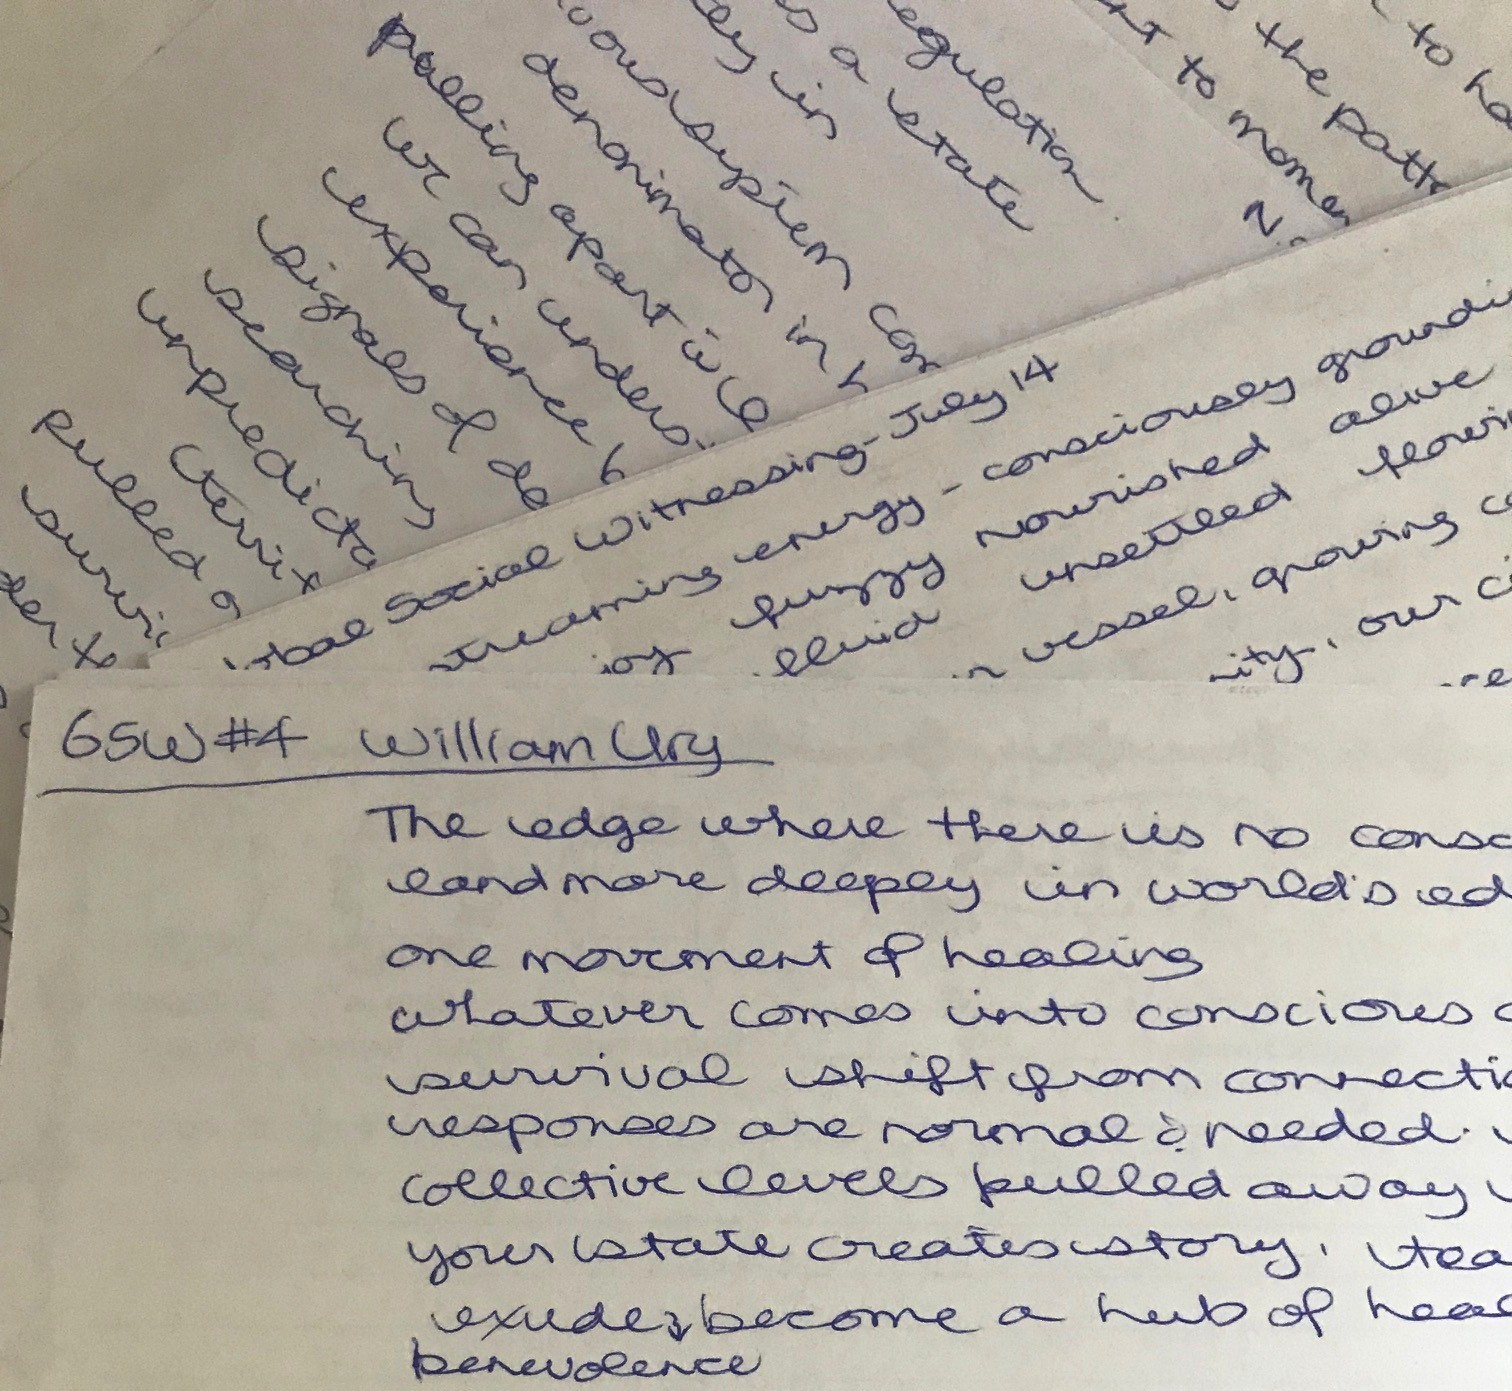 egulation
s a state
ey in
vous system can
denominator in
pulling apart is
we can unders
experience
signals of
searching
unpredicta
pulled
survi
to ha
the patte
nt to momen
Global Social Witnessing - July 14
streaming energy - consciously groundi
fuzzy nourished alive
fluid unsettled flowin
vessel, growing
ity, our
GSW #4 William Ury
The edge where there is no consc
land more deeply in world's ed
one movement of healing
whatever comes into conscious
survival shift from connectio
responses are normal & needed.
collective levels pulled away
your state creates story.
exude, become a hub of heal
benevolence